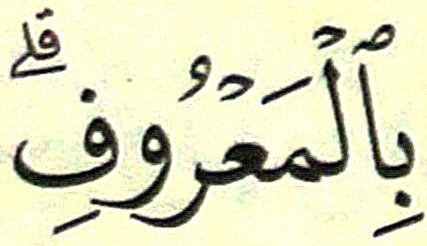 بِٱلْمَعْرُوفِۗ